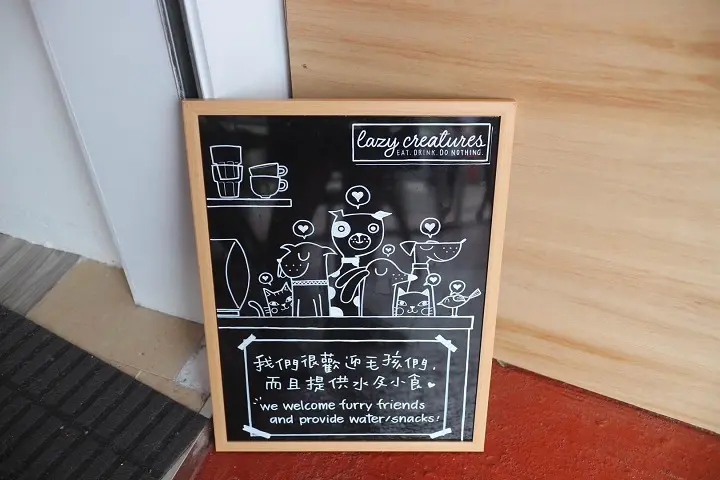 lazy creatures
EAT. DRINK. DO NOTHING.
我們很歡迎毛孩們,
而且提供水及小食
we welcome furry friends
and provide water/snacks!